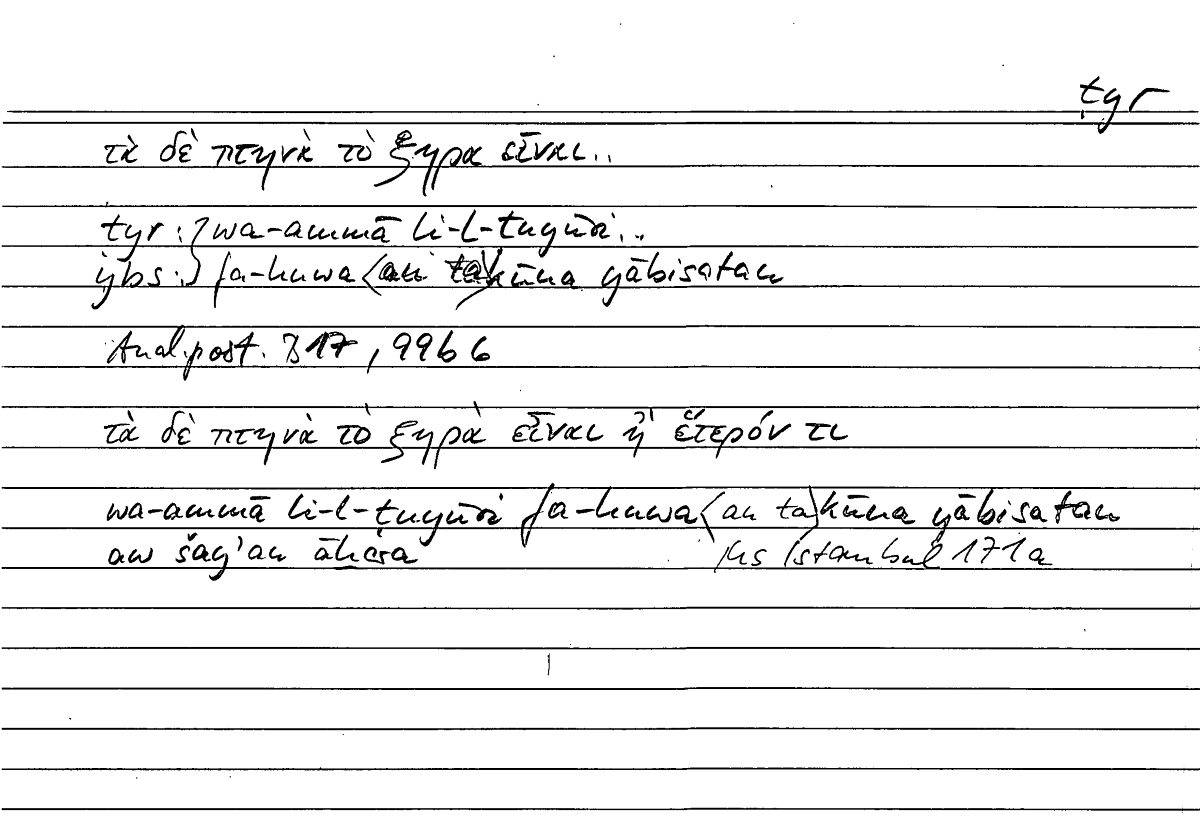 ṭyr
τὰ δὲ πτηνὰ τὸ ξηρα εἶναι..
tyr:} wa-ammā li-l-ṭuyūri..
ybs:} fa-huwa <an ta>kūna yābisatan
Anal.post. B 17, 99b 6
τὰ δὲ πτηνὰ τὸ ξηρὰ εἶναι ἢ ἕτερόν τι
wa-ammā li-l-ṭuyūri fa-huwa <an ta>kūna yābisatan
aw šay'an āḫara
Hs Istanbul 171a